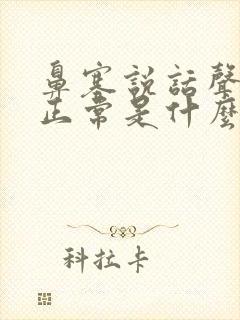 鼻塞說話聲
正常是什麼
科拉卡